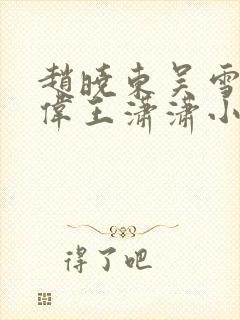 趙曉東吴雪
偉王潇潇小
得了吧